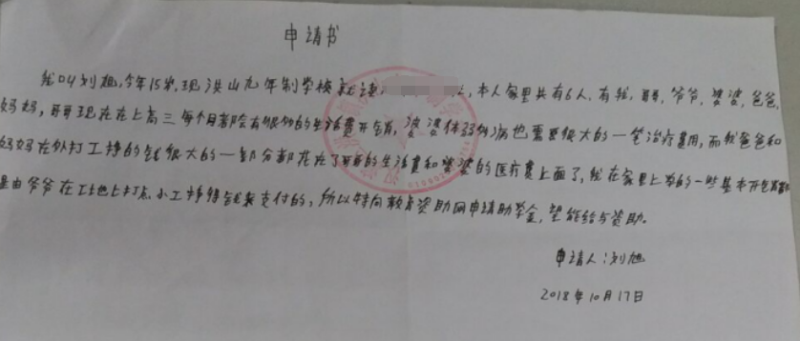 申请书
我叫刘旭,今年15岁,现洪山九年制学校就读,本人家里共有6人,有我,哥哥,爷爷,婆婆,爸爸,
妈妈,哥哥现在在上高三每个月都会有很多的生活费开销,婆婆体弱多病也需要很大的一笔治疗费用,而我爸爸和
妈妈在外打工挣的钱很大的一部分都花在了哥哥的生活费和婆婆的医疗费上面了,我在家里上学的一些基本开支都
是由爷爷在工地上打点小工挣得钱来支付的,所以特向教育资助网申请助学金,望能给与资助。
申请人:刘旭
2018年10月17日